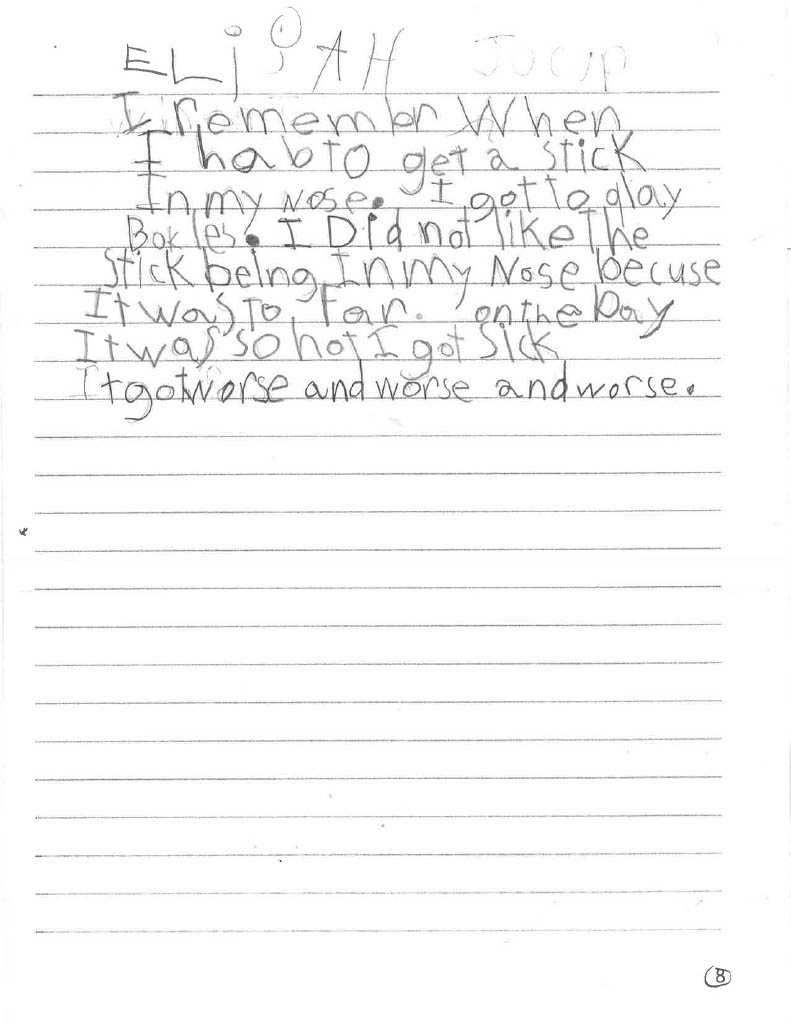 ELijAH
I remembr When
I hab to get a stick
In my Nose. I got to glay
Bok les. I Did not like The
Stick being In my Nose becuse
It was To Far. on the Day
It was so hot I got Sick
It got worse and worse and worse.
8